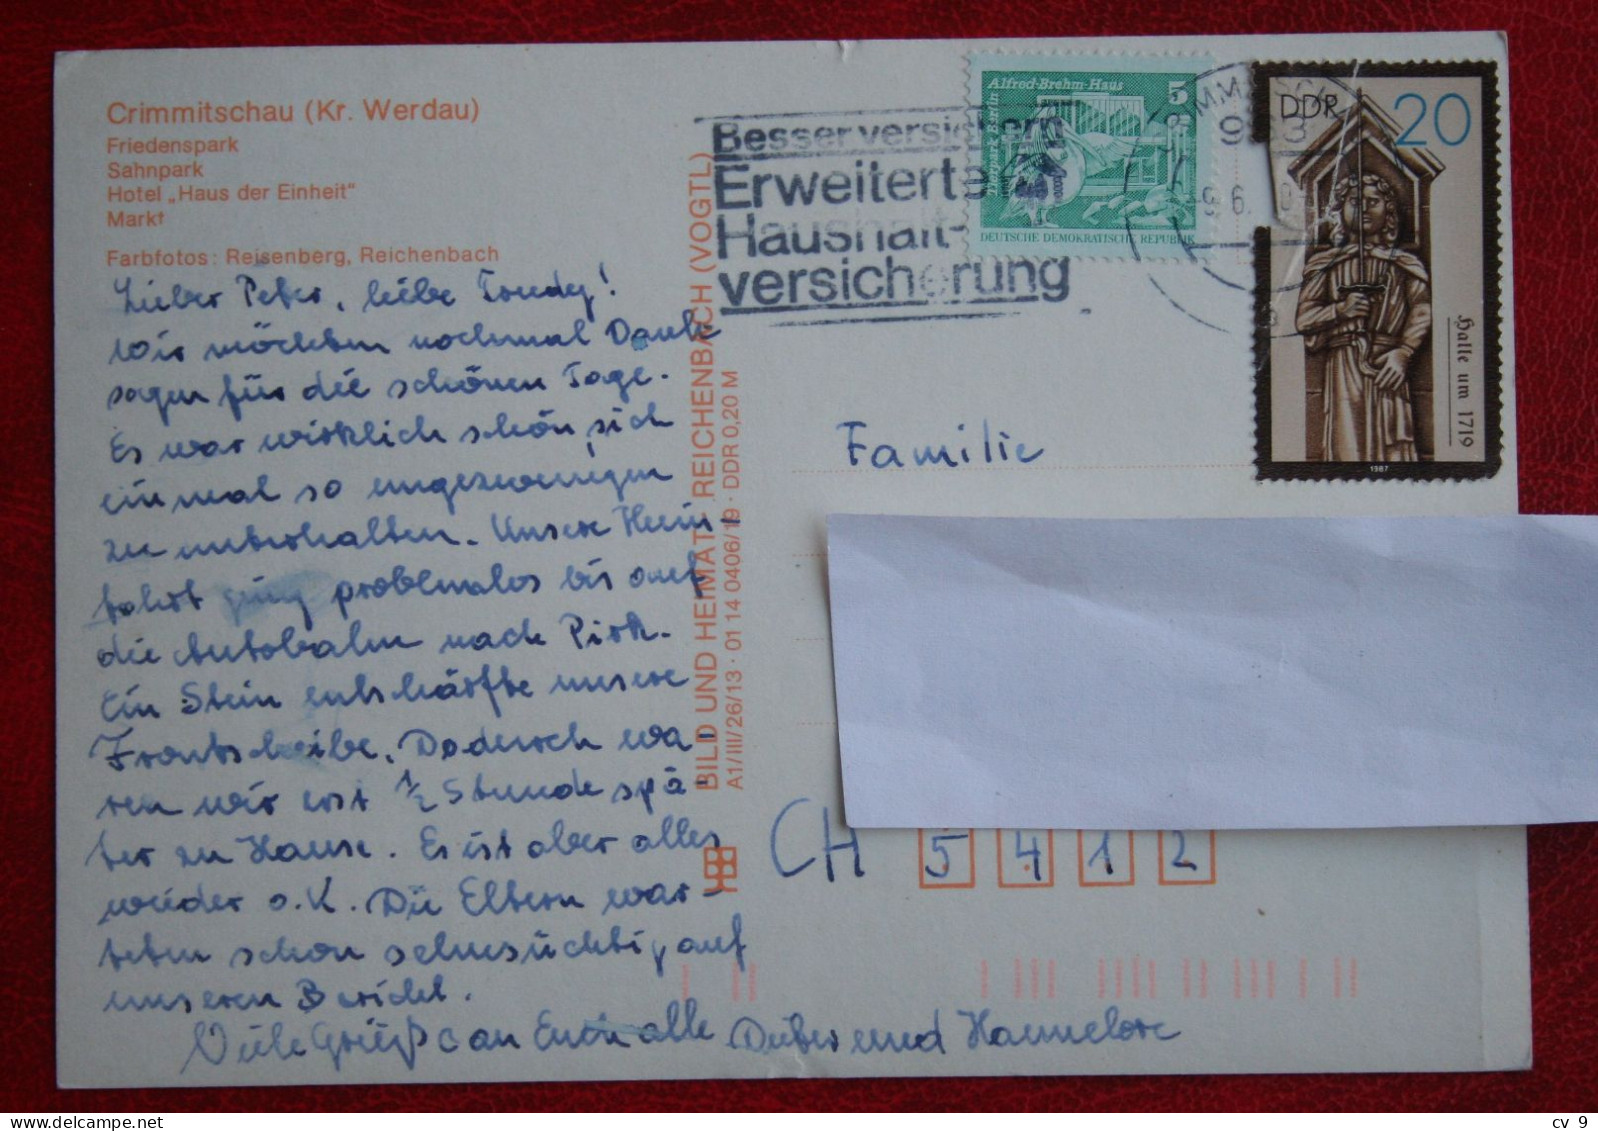 Crimmitschau (Kr. Werdau)
Friedenspark
Sahnpark
Hotel „Haus der Einheit"
Markt
Farbfotos: Reisenberg, Reichenbach
Lieber Peter, liebe Trudy!
Wir möchten nochmal Danke
sagen für die schönen Tage.
Es war wirklich schön, sich
einmal so ungezwungen
zu unterhalten. Unsere Heim-
fahrt ging problemlos bis auf
die Autobahn nach Pirk.
Ein Stein entschärfte unsere
Frontscheibe. Dadurch wa-
ren wir erst 1/2 Stunde spä-
ter zu Hause. Es ist aber alles
wieder o.K. Die Eltern war-
teten schon sehnsüchtig auf
unseren Bericht.
Viele Grüße an Euch alle Dieter und Hannelore
BILD UND HEIMAT REICHENBACH (VOGTL)
A1/III/26/13 · 01 14 0406/19 · DDR 0,20 M
Besser versichern
Erweiterte
Haushalt-
versicherung
Alfred-Brehm-Haus
5
Tierpark Berlin
DEUTSCHE DEMOKRATISCHE REPUBLIK
DDR 20
Halle um 1719
1987
Familie
CH 5412
cv 9